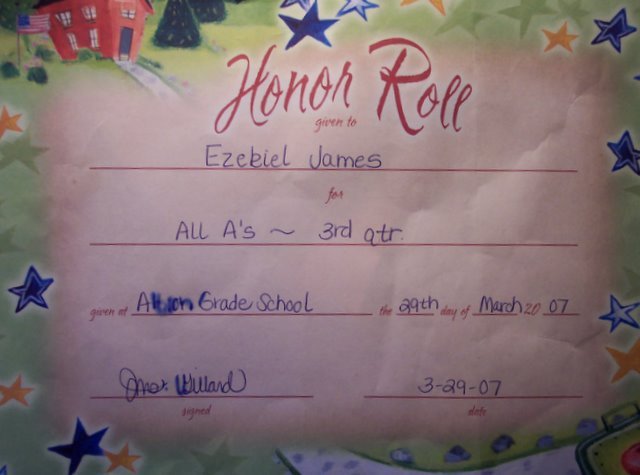 Honor Roll
given to
Ezekiel James
for
All A's ~ 3rd qtr.
given at Albion Grade School the 29th day of March 20 07
Willard 3-29-07
signed date